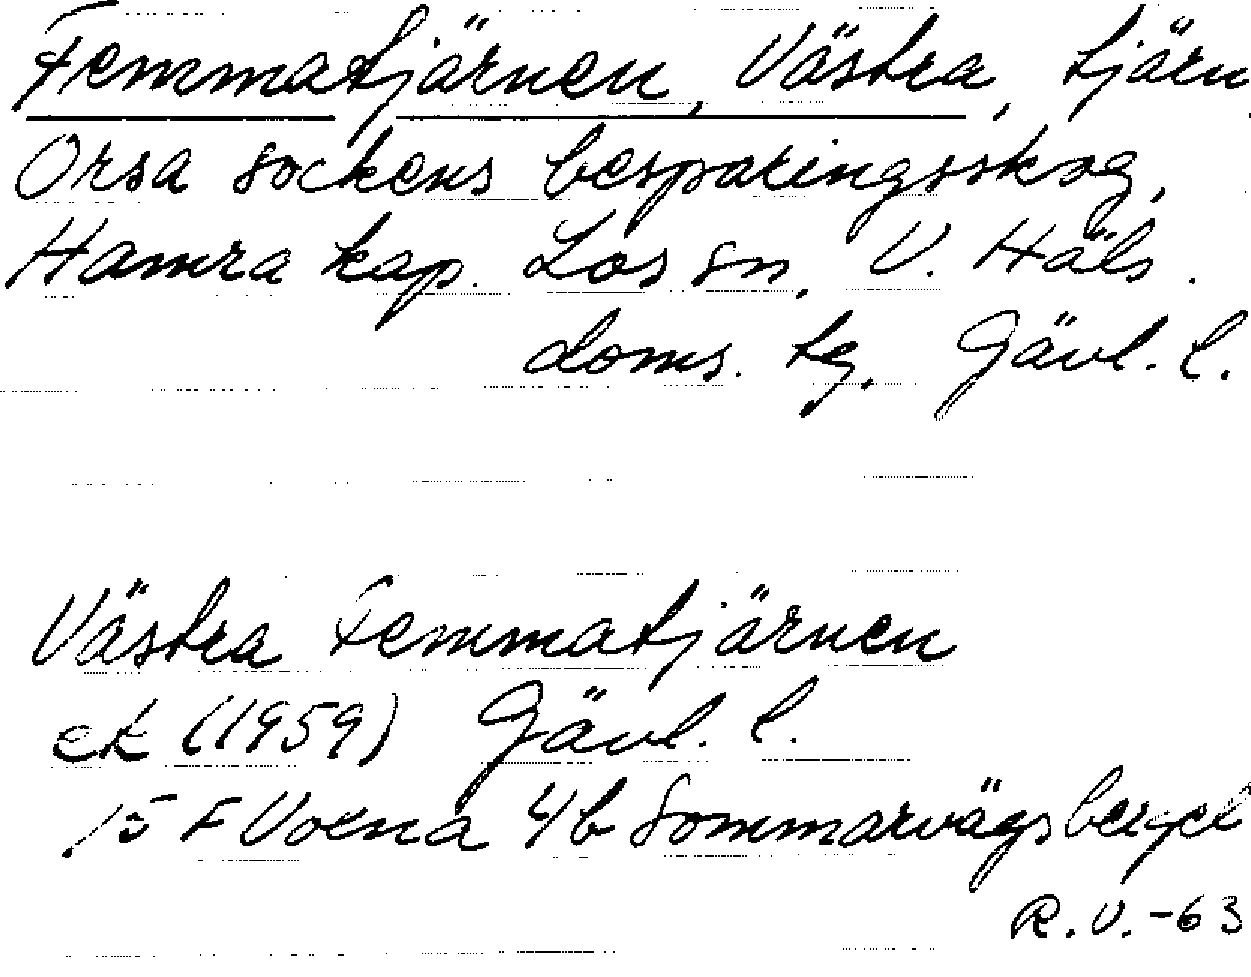 Femmatjärnen, Västra, tjärn
Orsa sockens besparingsskog,
Hamra kap. Los sn, V. Häls.
doms. tg, Gävl. l.
Västra Femmatjärnen
ek (1959) Gävl. l.
15 F Voxna 4b Sommarvägsberget
R.V.-63